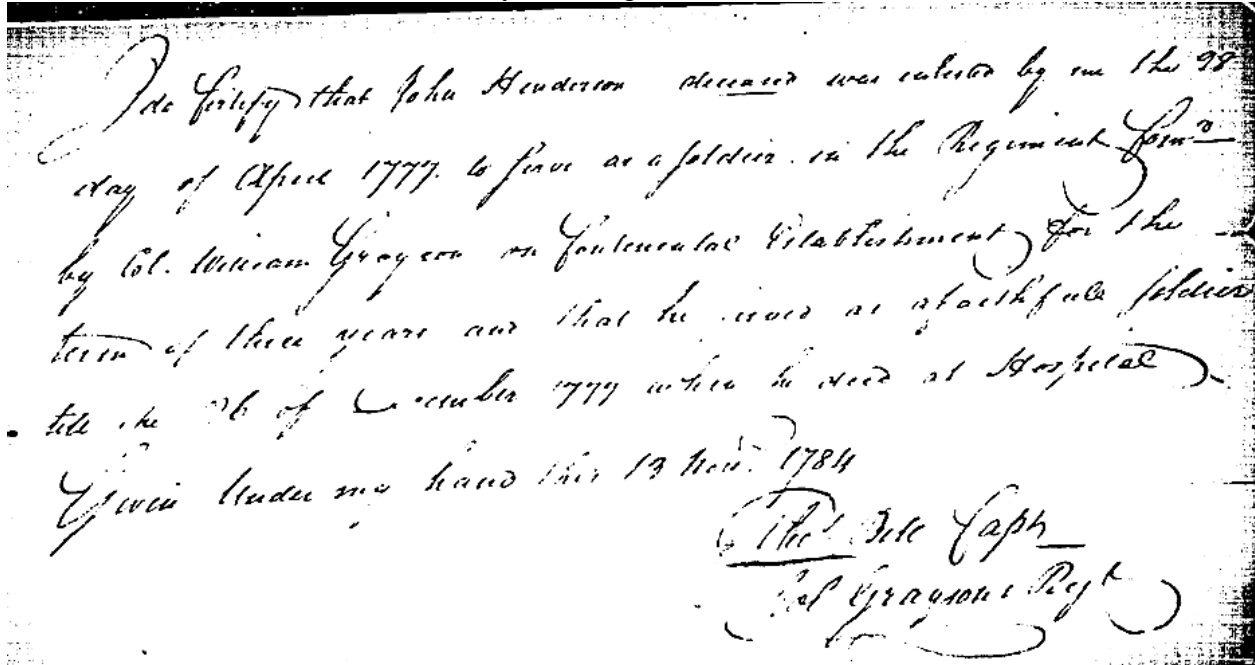 I do Certify that John Henderson deceased was enlisted by me the 28
day of April 1777. to serve as a soldier in the Regiment Comd
by Col. William Grayson on Continental Establishment for the
term of three years and that he served as a faithfull soldier
till the 26 of December 1777 when he died at Hospital
Given Under my hand this 13 Novr. 1784
Thos Bell Capt
Col Graysons Regt